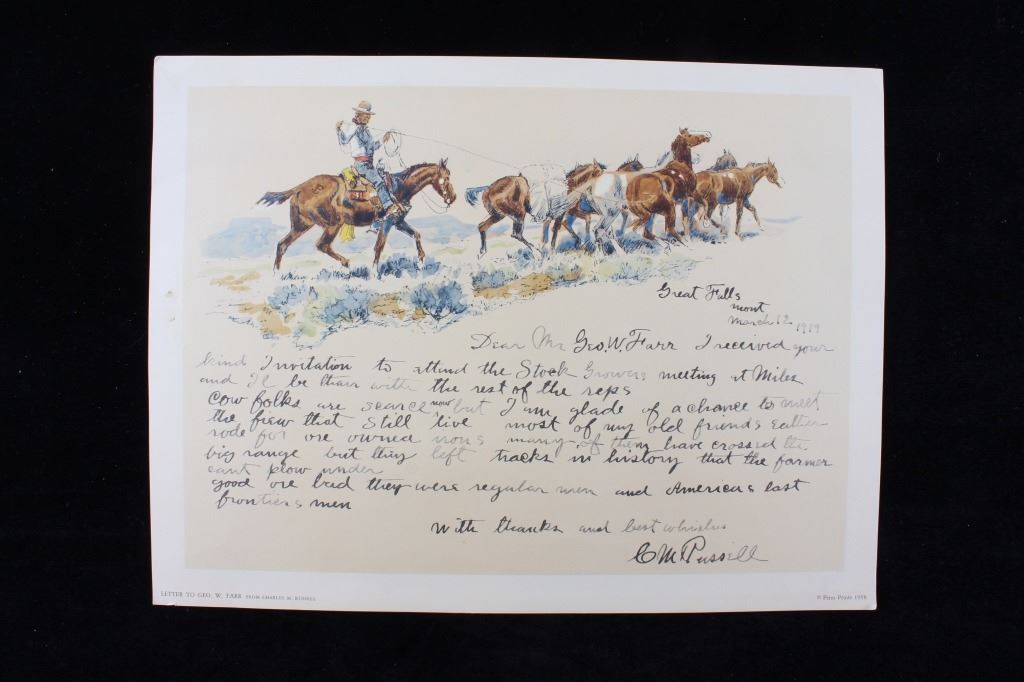 Great Falls
mont
March 12 1919
Dear Mr Geo. W Farr I received your
kind Invitation to attend the Stock Growers meeting at Miles
and Il be thair with the rest of the reps
Cow folks are scarce now but I am glade of a chance to meet
the fiew that still live most of my old friends eather
rode for ore owned irons many of them have crossed the
big range but they left tracks in history that the farmer
cant plow under
good ore bad they were regular men and Americas last
frontiers men
With thanks and best whishes
CM Russell
LETTER TO GEO. W. FARR FROM CHARLES M. RUSSELL
© Penn Prints 1958